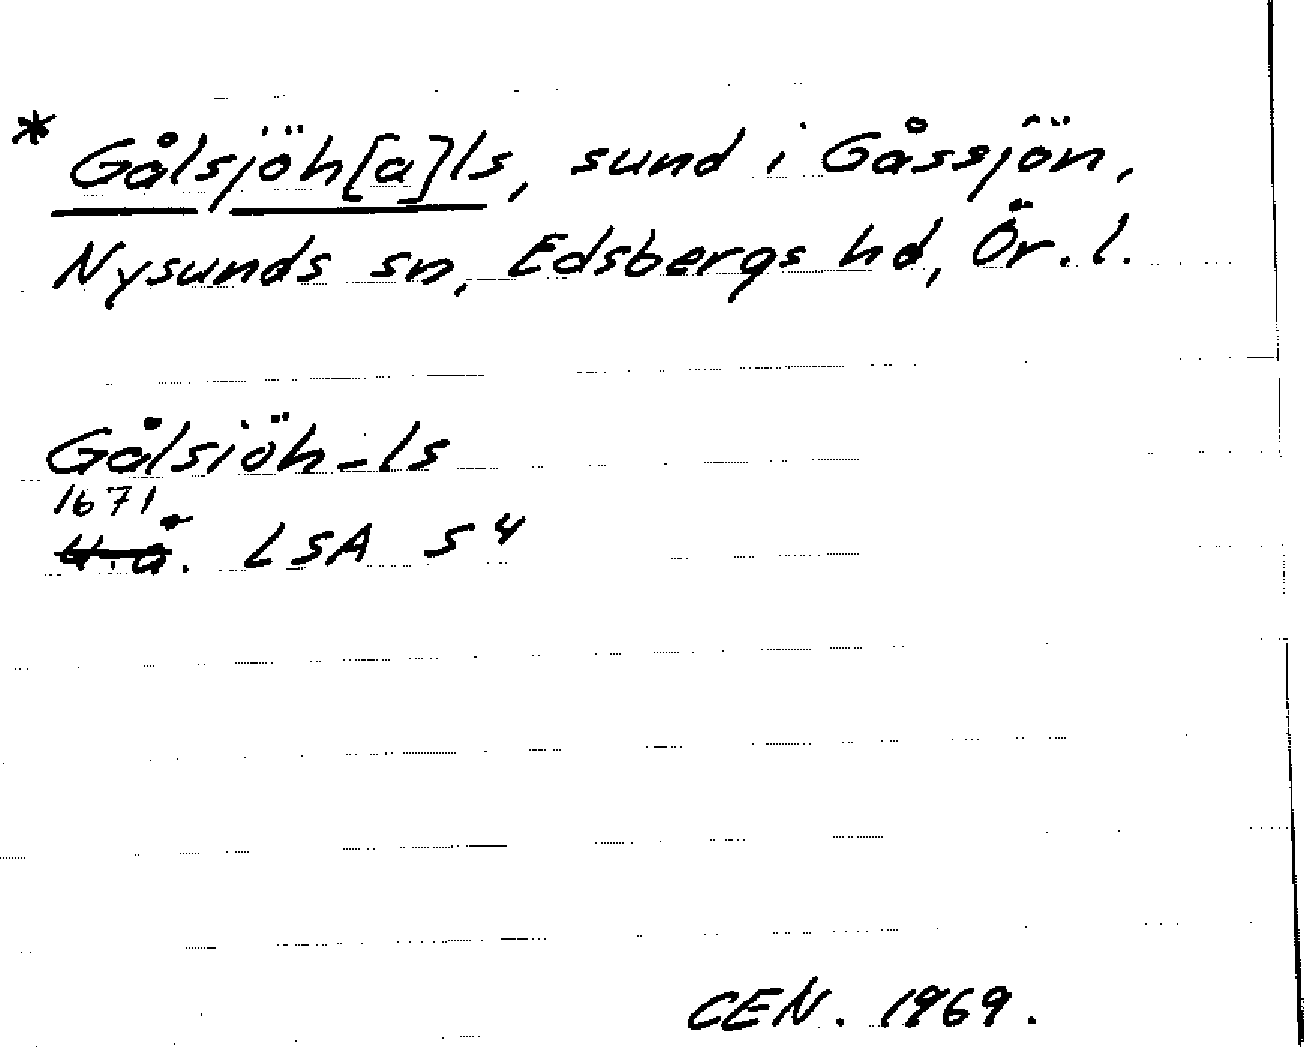 * Gålsjöh[a]ls, sund i Gåssjön,
Nysunds sn, Edsbergs hd, Ör. l.
Gålsiöh-ls
1671
U.å. LSA S 4
CEN. 1969.